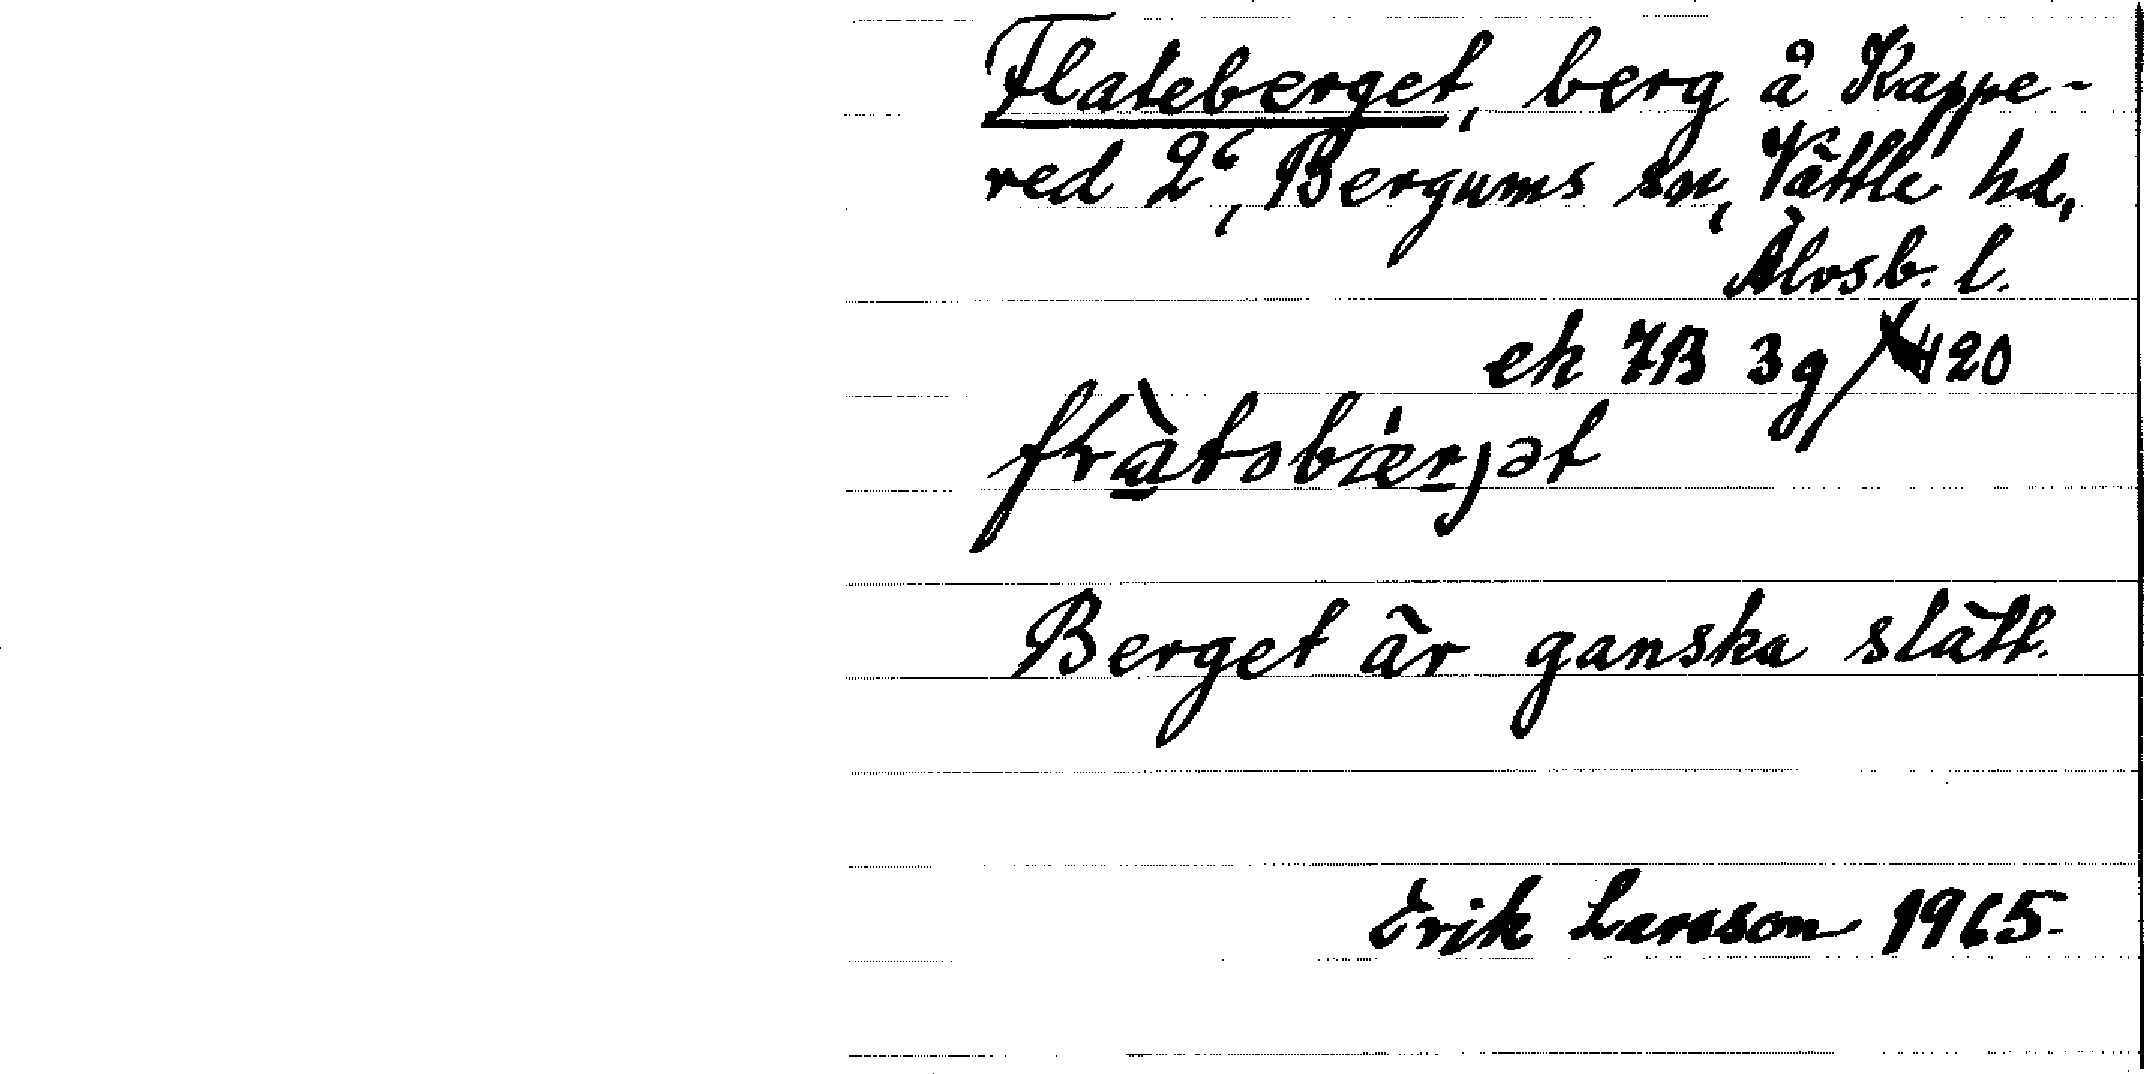 Flateberget, berg å Kappe-
red 2⁶, Bergums sn, Vättle hd,
Älvsb. l.
ek 7B 3g / 420
Berget är ganska slätt.
Erik Larsson 1965.